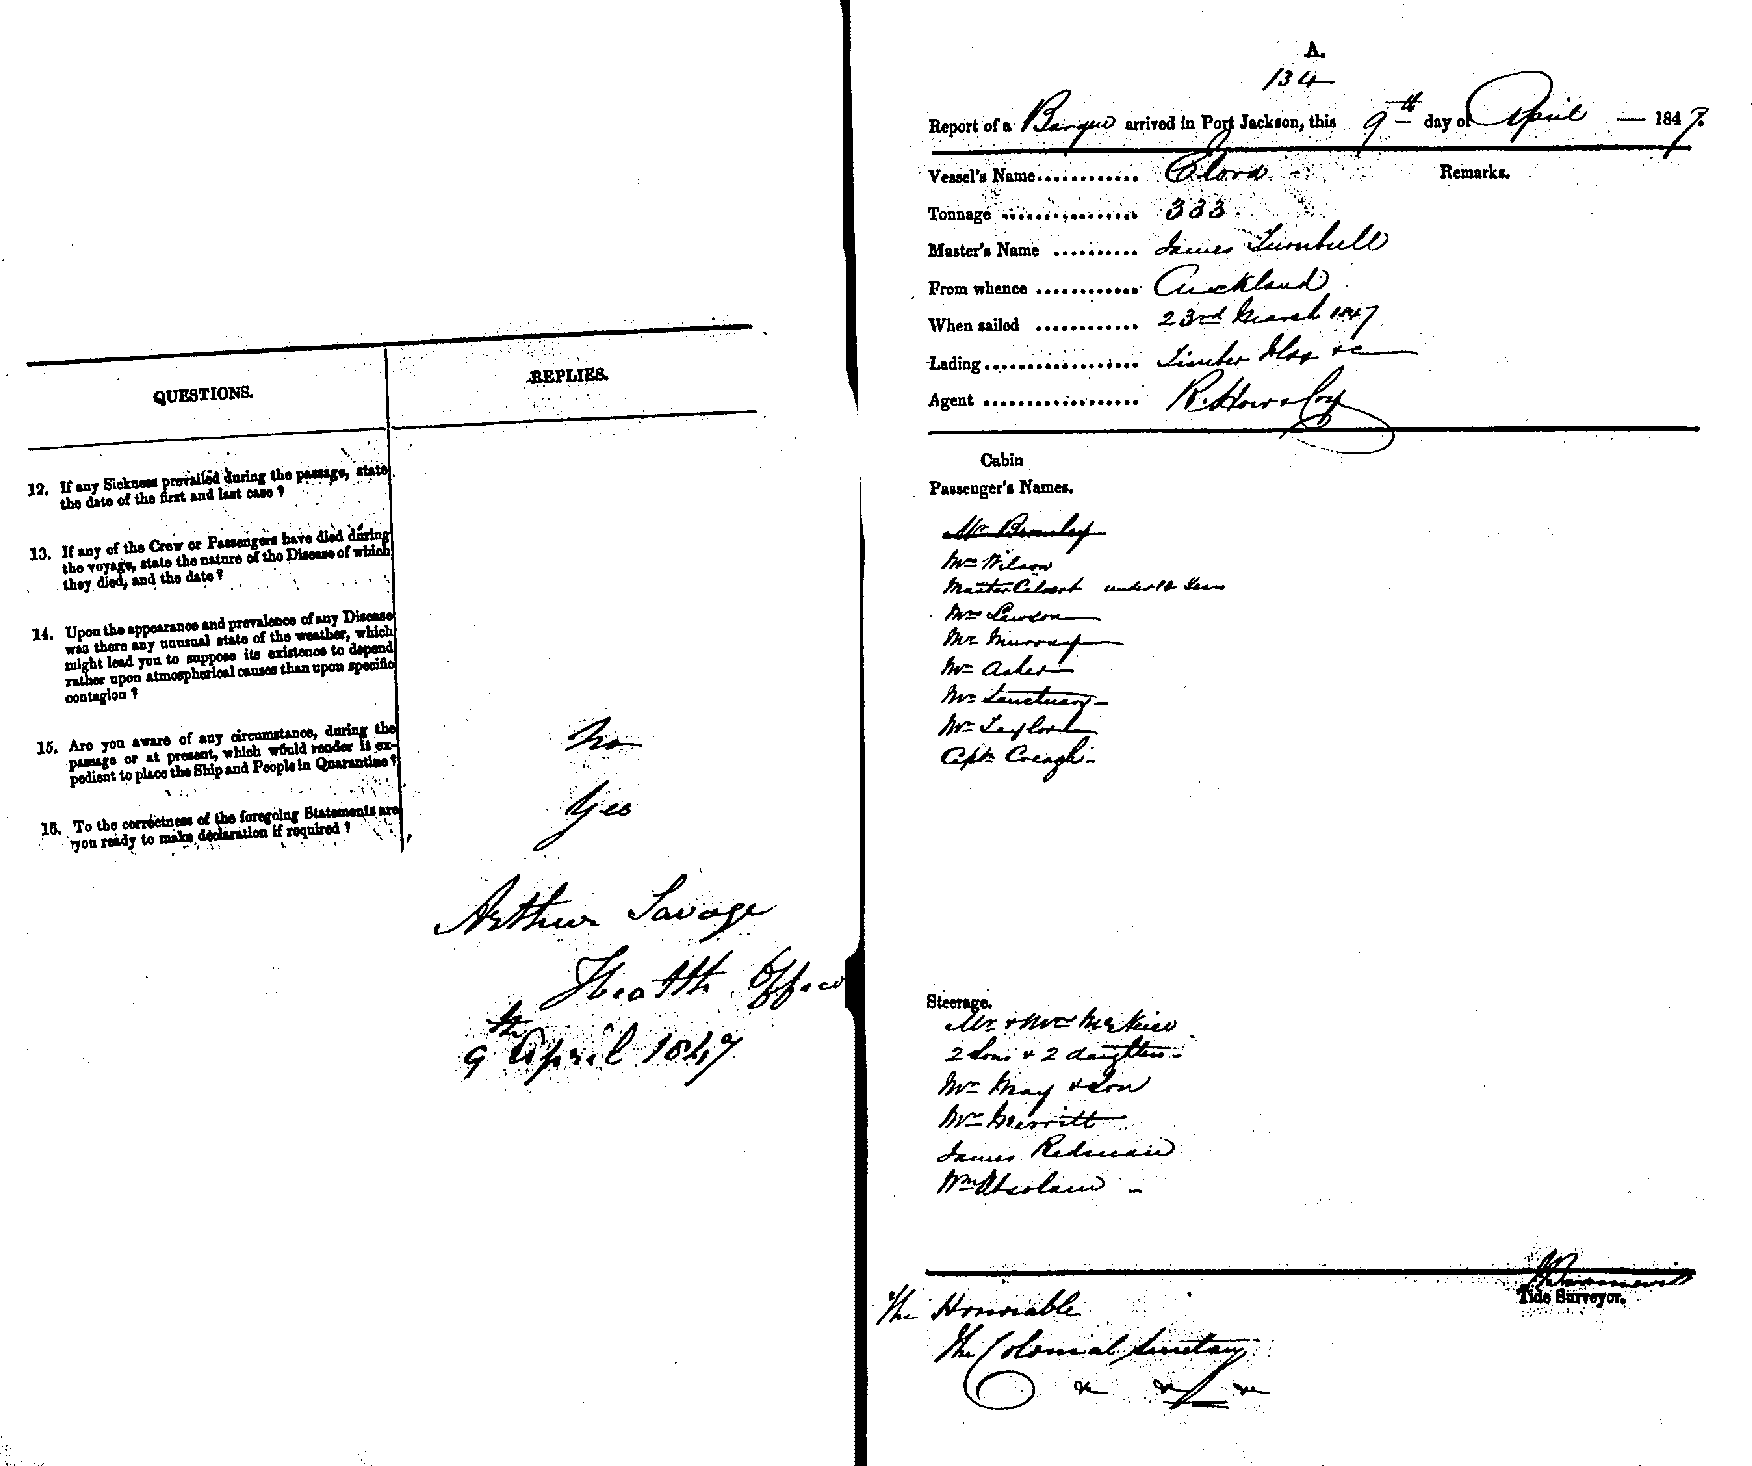 QUESTIONS.
REPLIES.
12. If any Sickness prevailed during the passage, state
the date of the first and last case ?
13. If any of the Crew or Passengers have died during
the voyage, state the nature of the Disease of which
they died, and the date ?
14. Upon the appearance and prevalence of any Disease
was there any unusual state of the weather, which
might lead you to suppose its existence to depend
rather upon atmospherical causes than upon specific
contagion ?
15. Are you aware of any circumstance, during the
passage or at present, which would render is ex-
pedient to place the Ship and People in Quarantine ?
No
16. To the correctness of the foregoing Statements are
you ready to make declaration if required ?
Yes
Arthur Savage
Health Officer
9th April 1847
A.
134
Report of a Barque arrived in Port Jackson, this 9th day of April — 1847.
Vessel's Name............ Elora
Remarks.
Tonnage ................ 333
Master's Name .......... James Turnbull
From whence ............ Auckland
When sailed ............ 23rd March 1847
Lading.................. Timber &c
Agent .................. R. How & Coy
Cabin
Passenger's Names.
Mr Bromley
Mr Wilson
Master Calvert under 12 Years
Mrs Lawson
Mr Murray
Mr Asher
Mr Sanctuary
Mr Taylor
Captn Creagh
Steerage.
Mr & Mrs
2 Sons & 2 daughters
Mr May & Son
Mr Merritt
James Redman
Wm Absolam
Tide Surveyor.
The Honorable
The Colonial Secretary
&c &c &c